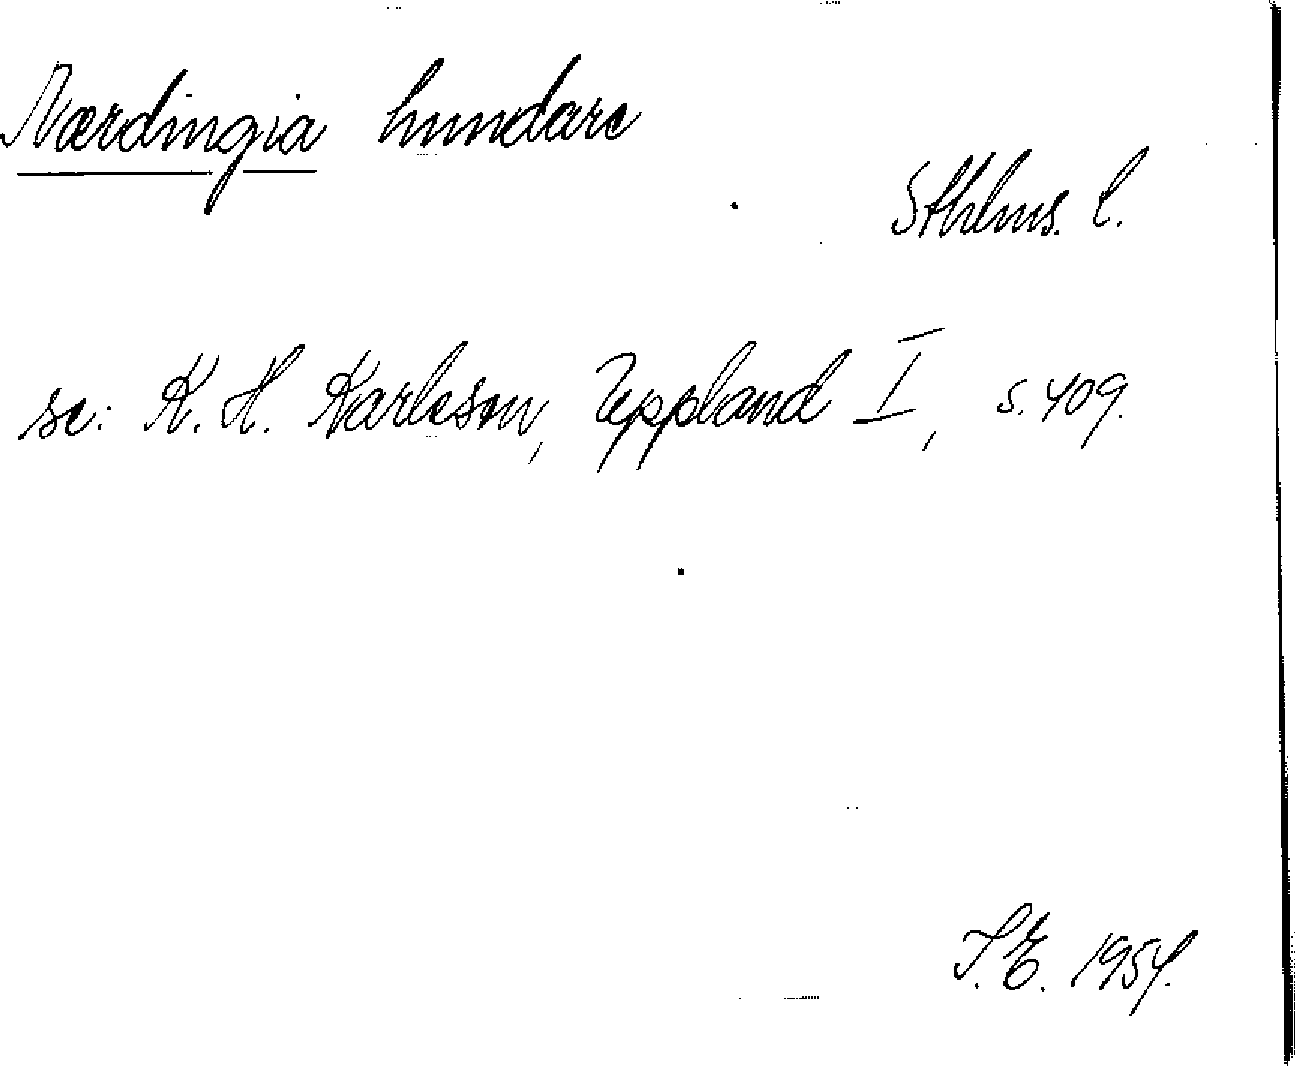 Nærdingia hundare
Sthlms. l.
se: K. H. Karlsson, Uppland I, s. 409.
I. E. 1954.